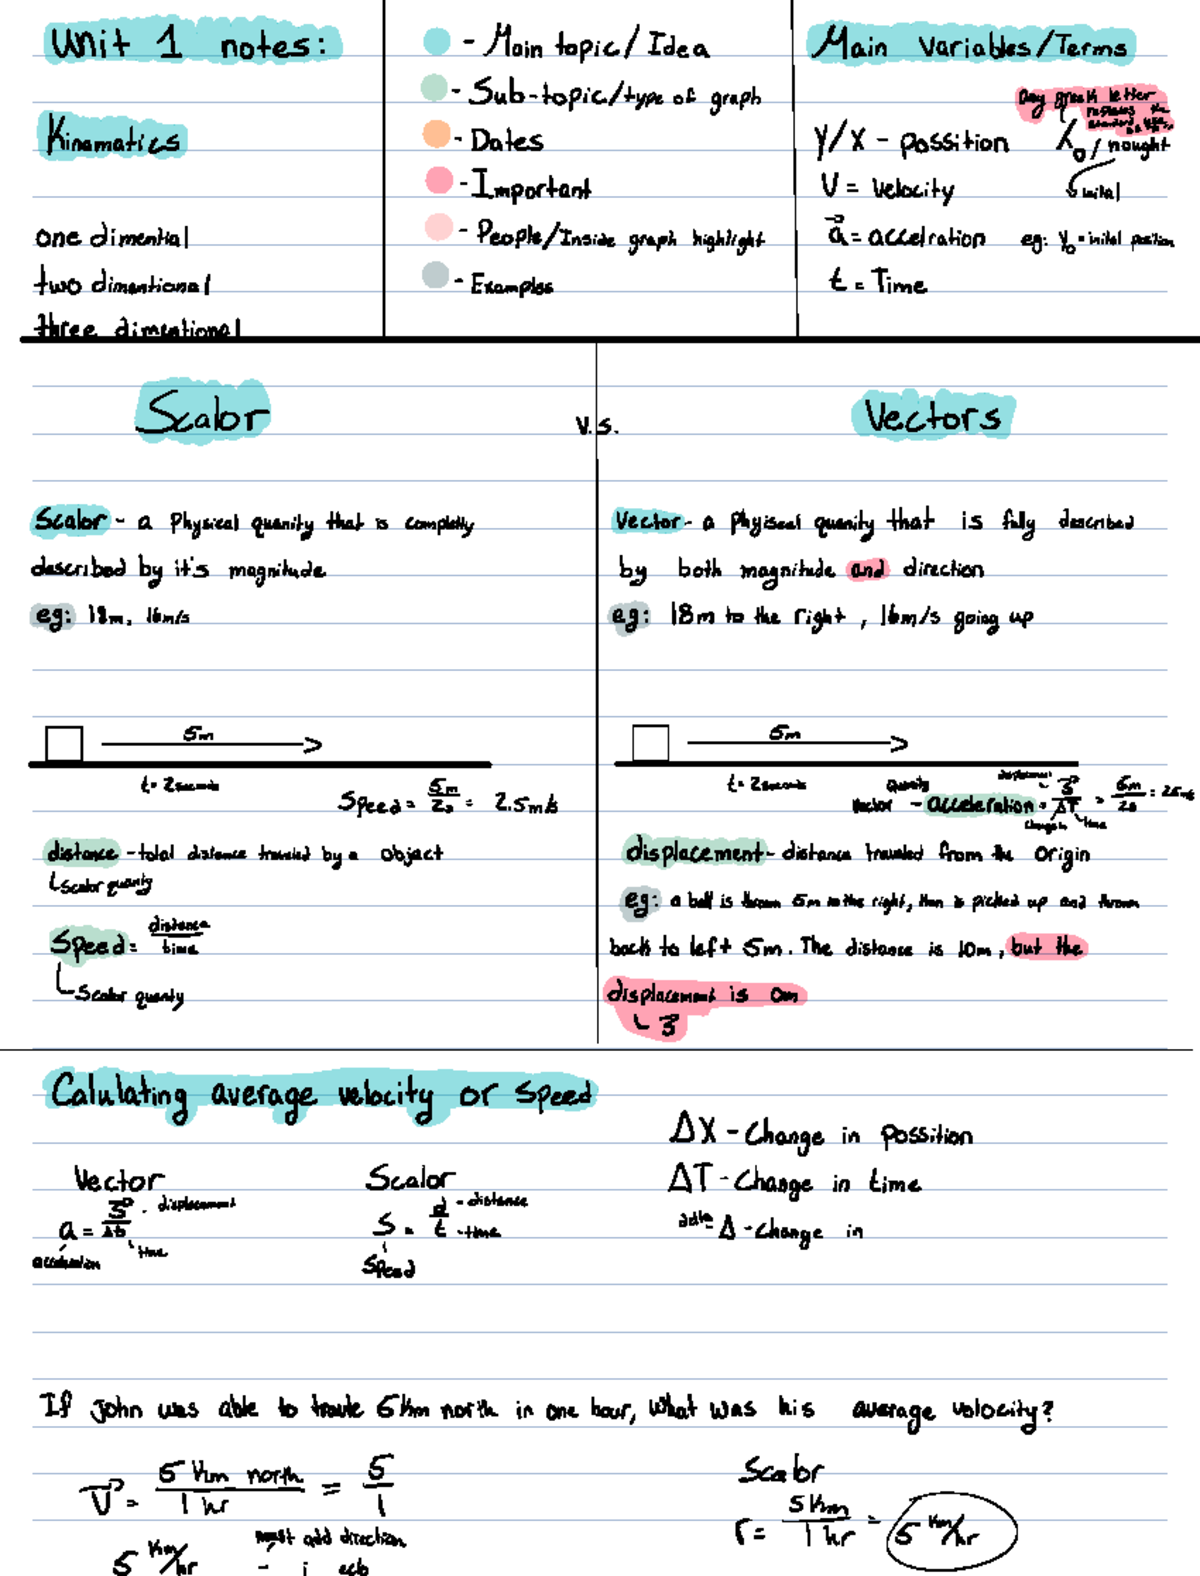 Unit 1 notes:
Kinamatics
one dimential
two dimentional
three dimentional
- Main topic/Idea
- Sub-topic/type of graph
- Dates
- Important
- People/Inside graph highlight
- Examples
Main Variables/Terms
Any greek letter
replaces the
Y/X - possition
X₀/nought
V = velocity
inital
a⃗ = accelration
eg: Y₀ = inital position
t = Time
Scalor
V.S.
Vectors
Scalor - a Physical quanity that is completly
described by it's magnitude
eg: 18m, 16m/s
Vector - a phyiscal quanity that is fully described
by both magnitude and direction
eg: 18m to the right, 16m/s going up
5m
t= 2seconds
Speed = 5m/2s = 2.5m/s
distance - total distance traveled by a object
Scalor quanty
Speed = distance/time
Scalor quanty
5m
t= 2seconds
Quanity
displacement
Vector - acceleration = s⃗/ΔT = 5m/2s = 2.5m/s
change in
time
displacement - distance traveled from the origin
eg: a ball is thrown 5m to the right, then is picked up and thrown
back to left 5m. The distance is 10m, but the
displacement is 0m
s⃗
Calulating average velocity or Speed
Vector
a = s⃗/Δt
displacement
time
accelration
Scalor
S = d/t
- distance
- time
Speed
ΔX - Change in possition
ΔT - Change in time
Δ - Change in
If John was able to travle 5km north in one hour, What was his average velocity?
V⃗ = 5 Km north/1 hr = 5/1
5 Km/hr
must add direction
Scalor
r = 5Km/1 hr = 5 Km/hr